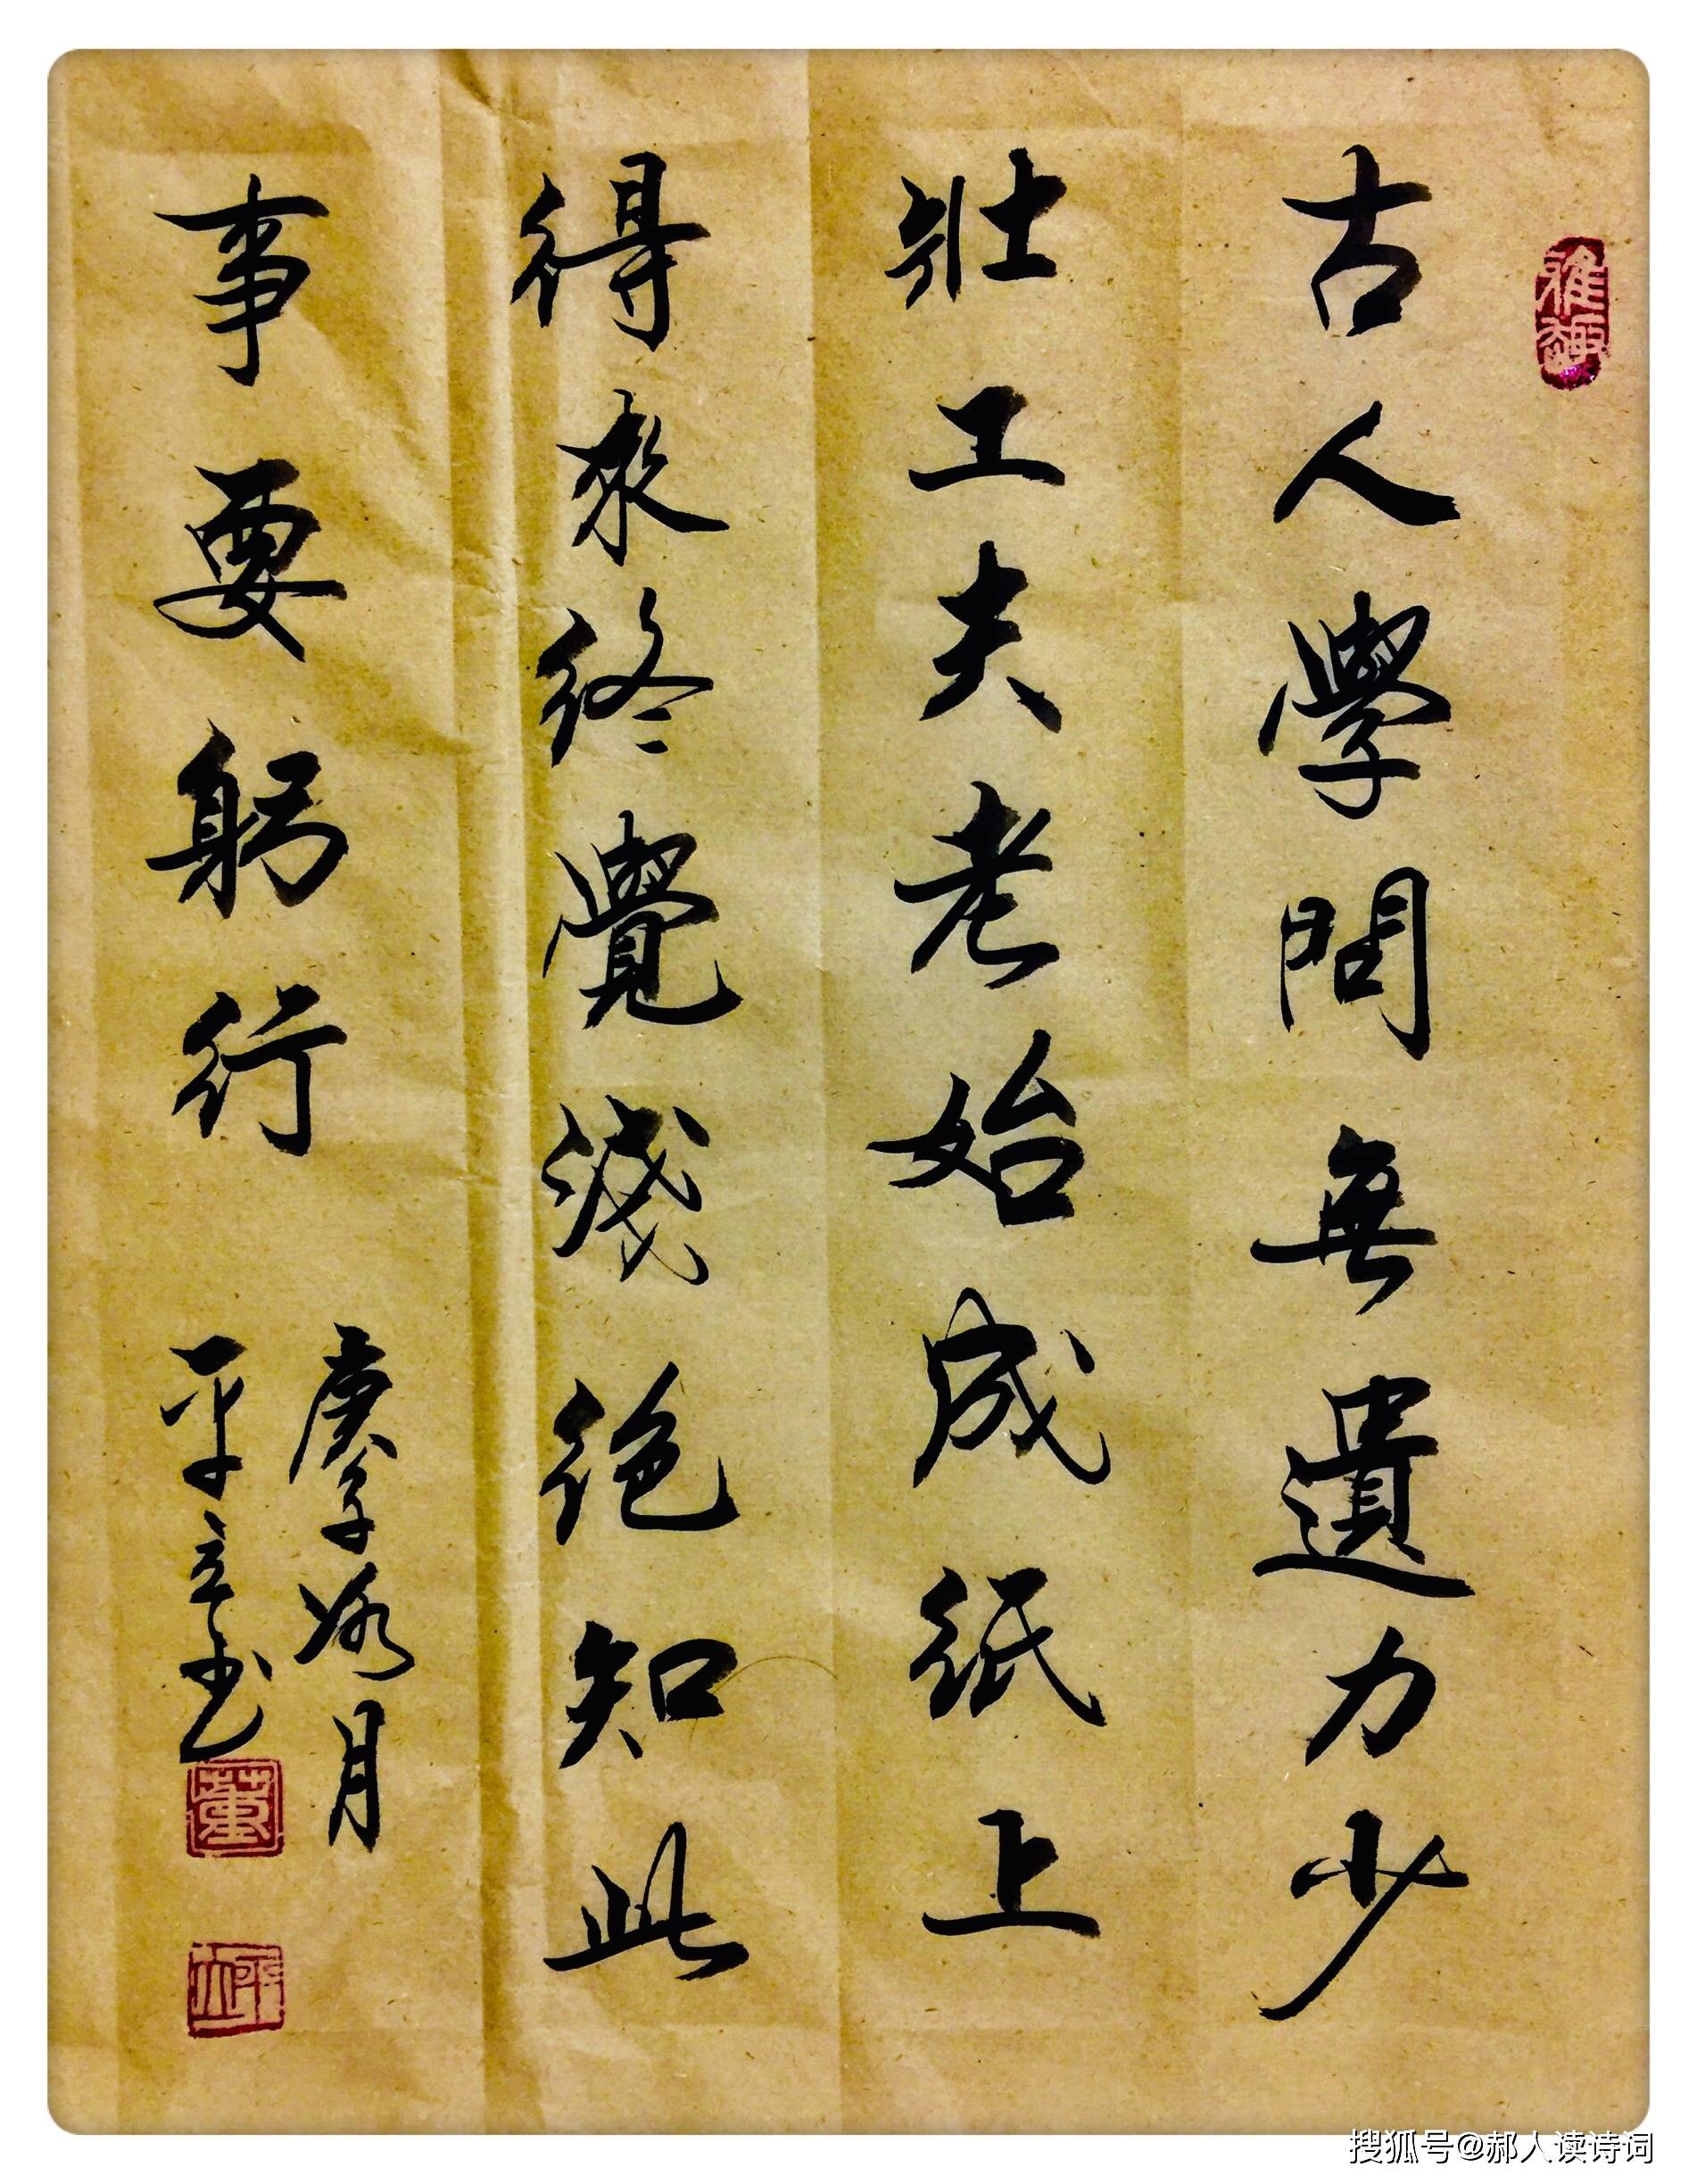 雅趣
古人學問無遺力少
壯工夫老始成紙上
得來終覺淺絕知此
事要躬行
庚子冰月
平立书
董
平立
搜狐号@郝人读诗词